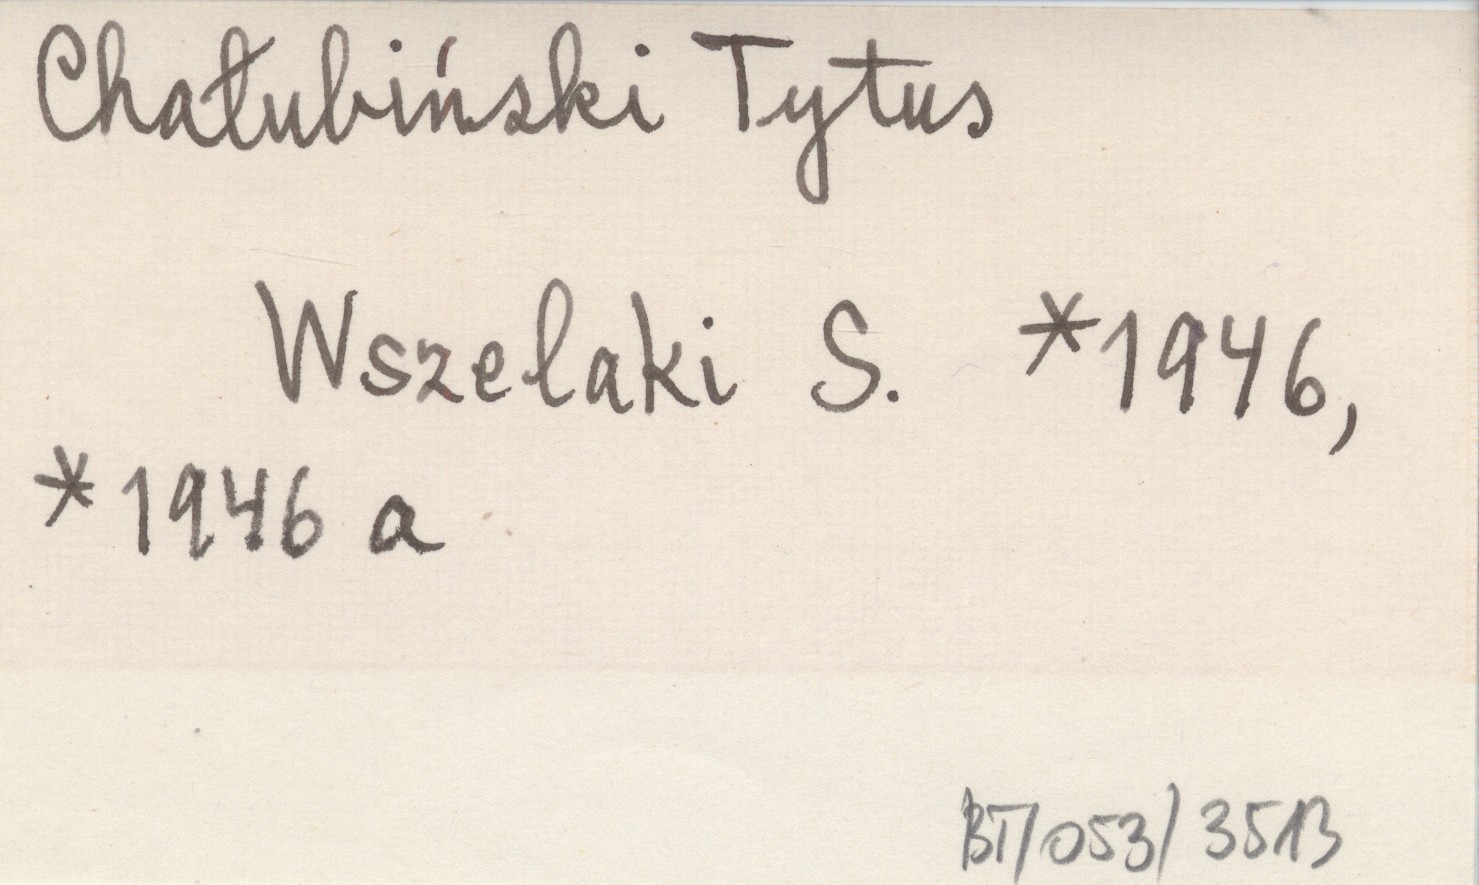 Chałubiński Tytus
Wszelaki S. *1946,
*1946 a
BT/053/3513